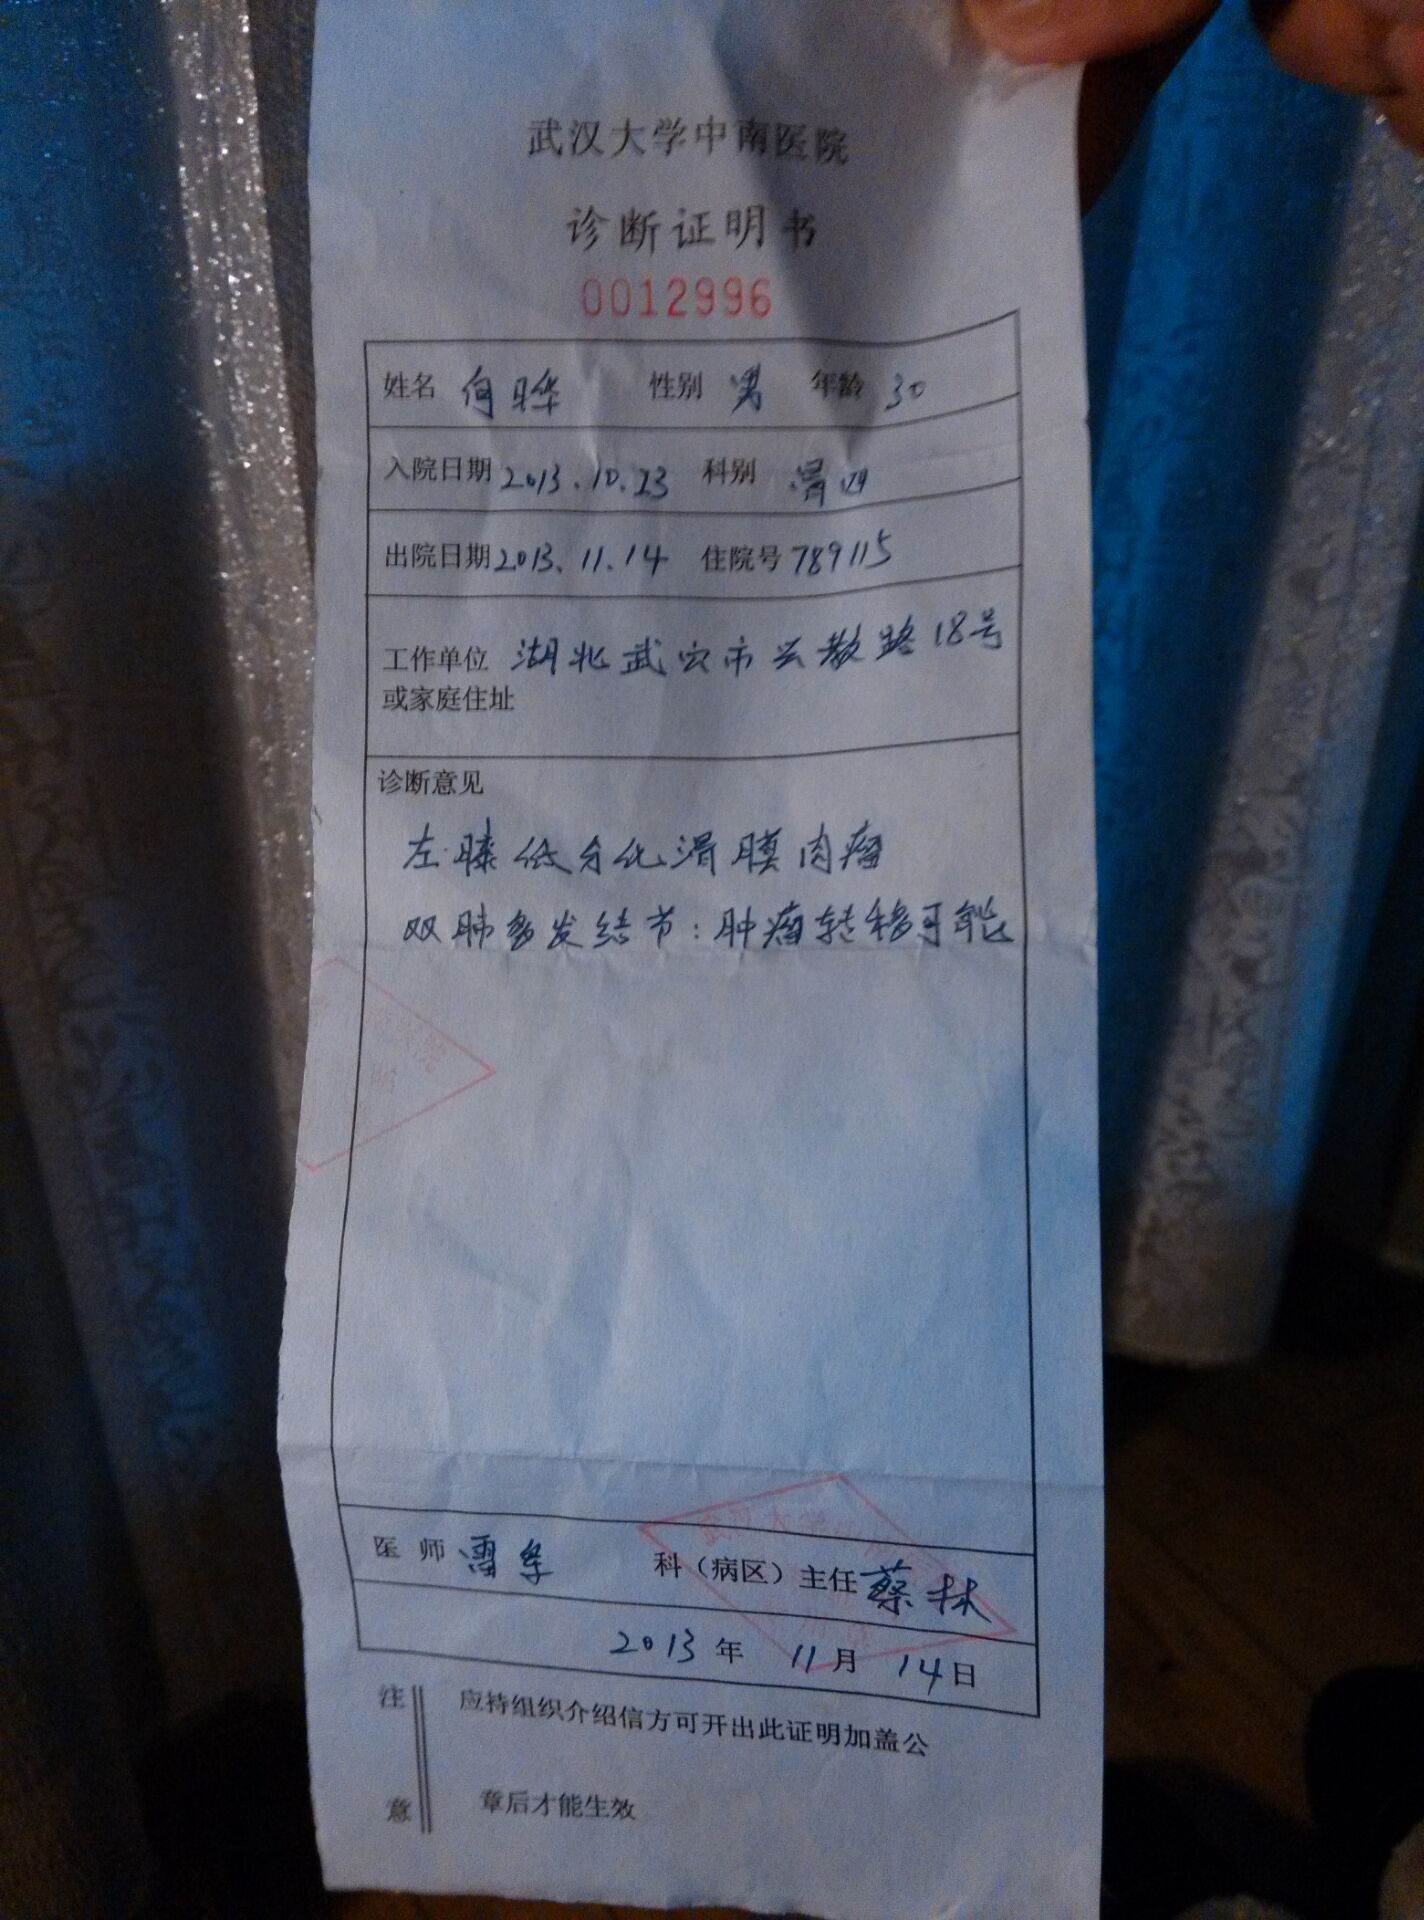 武汉大学中南医院
诊断证明书
0012996
姓名 何晔 性别 男 年龄 30
入院日期 2013.10.23 科别 骨四
出院日期 2013.11.14 住院号 789115
工作单位 湖北武穴市兴教路18号
或家庭住址
诊断意见
左膝低分化滑膜肉瘤
双肺多发结节:肿瘤转移可能
医师 雷军 科(病区)主任 蔡林
2013年 11月 14日
注意
应持组织介绍信方可开出此证明加盖公
章后才能生效